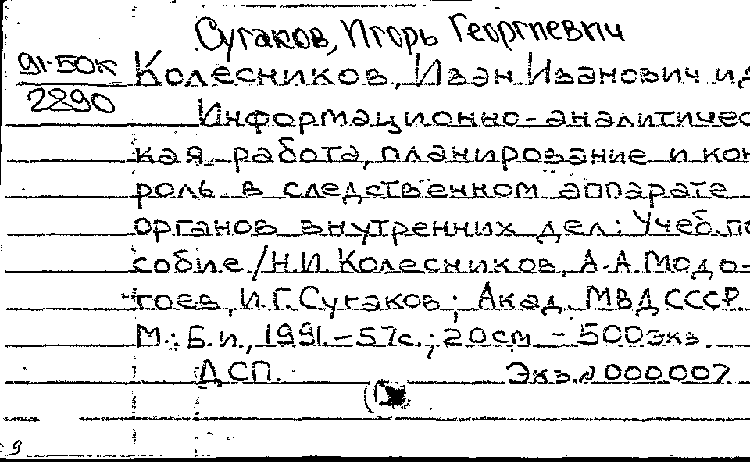 Сугаков, Игорь Георгиевич
91-50к
2890
Колесников, Иван Иванович и д
Информационно-аналитичес
кая работа, планирование и кон
роль в следственном аппарате
органов внутренних дел: Учеб. по
собие / Н.И. Колесников, А.А. Модо-
гоев, И.Г. Сугаков; Акад. МВД СССР.
М.: Б.и., 1991. – 57с.; 20см – 500экз.
ДСП. Экз.№000007
9